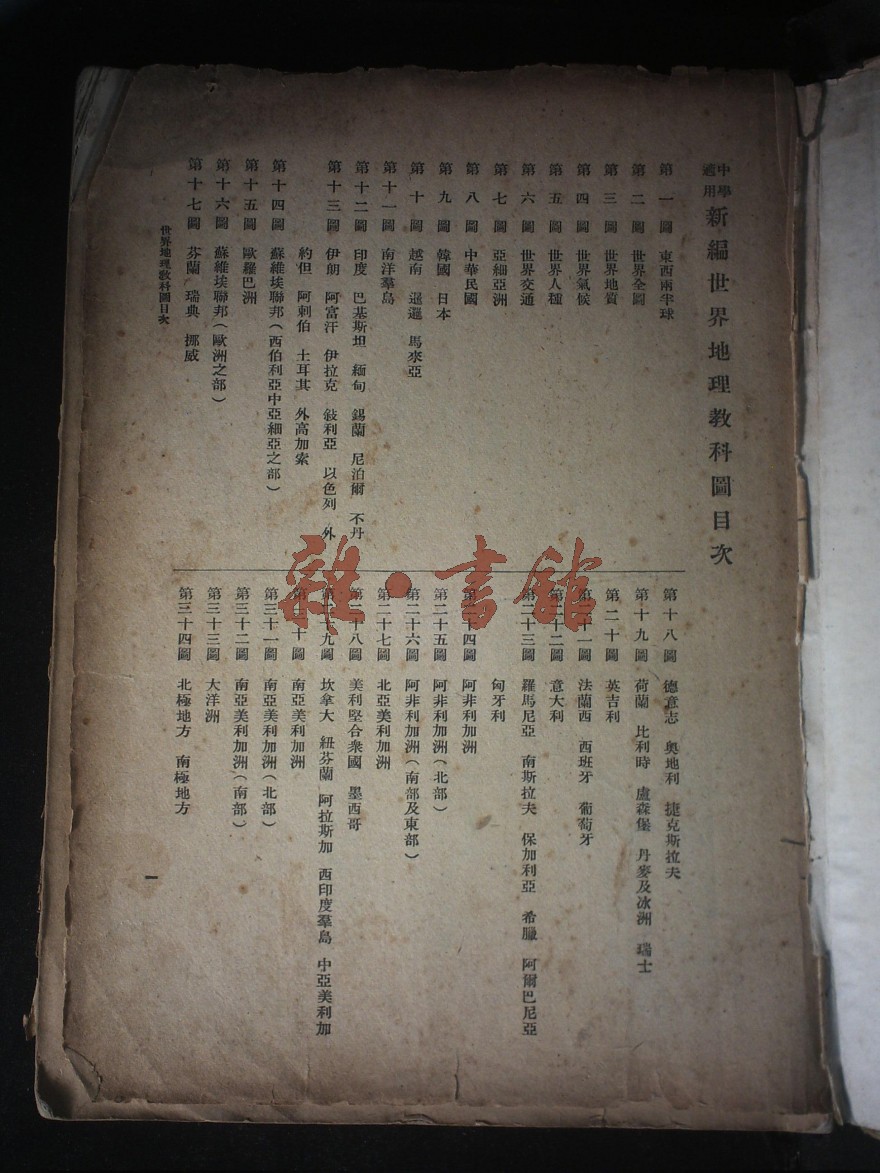 中學適用 新編世界地理教科圖目次
第一圖 東西兩半球
第二圖 世界全圖
第三圖 世界地質
第四圖 世界氣候
第五圖 世界人種
第六圖 世界交通
第七圖 亞細亞洲
第八圖 中華民國
第九圖 韓國 日本
第十圖 越南 暹邏 馬來亞
第十一圖 南洋羣島
第十二圖 印度 巴基斯坦 緬甸 錫蘭 尼泊爾 不丹
第十三圖 伊朗 阿富汗 伊拉克 敍利亞 以色列 外
約但 阿剌伯 土耳其 外高加索
第十四圖 蘇維埃聯邦(西伯利亞中亞細亞之部)
第十五圖 歐羅巴洲
第十六圖 蘇維埃聯邦(歐洲之部)
第十七圖 芬蘭 瑞典 挪威
第十八圖 德意志 奧地利 捷克斯拉夫
第十九圖 荷蘭 比利時 盧森堡 丹麥及冰洲 瑞士
第二十圖 英吉利
第二十一圖 法蘭西 西班牙 葡萄牙
第二十二圖 意大利
第二十三圖 羅馬尼亞 南斯拉夫 保加利亞 希臘 阿爾巴尼亞
匈牙利
第二十四圖 阿非利加洲
第二十五圖 阿非利加洲(北部)
第二十六圖 阿非利加洲(南部及東部)
第二十七圖 北亞美利加洲
第二十八圖 美利堅合衆國 墨西哥
第二十九圖 坎拿大 紐芬蘭 阿拉斯加 西印度羣島 中亞美利加
第三十圖 南亞美利加洲
第三十一圖 南亞美利加洲(北部)
第三十二圖 南亞美利加洲(南部)
第三十三圖 大洋洲
第三十四圖 北極地方 南極地方
世界地理教科圖目次
一
雜·書館